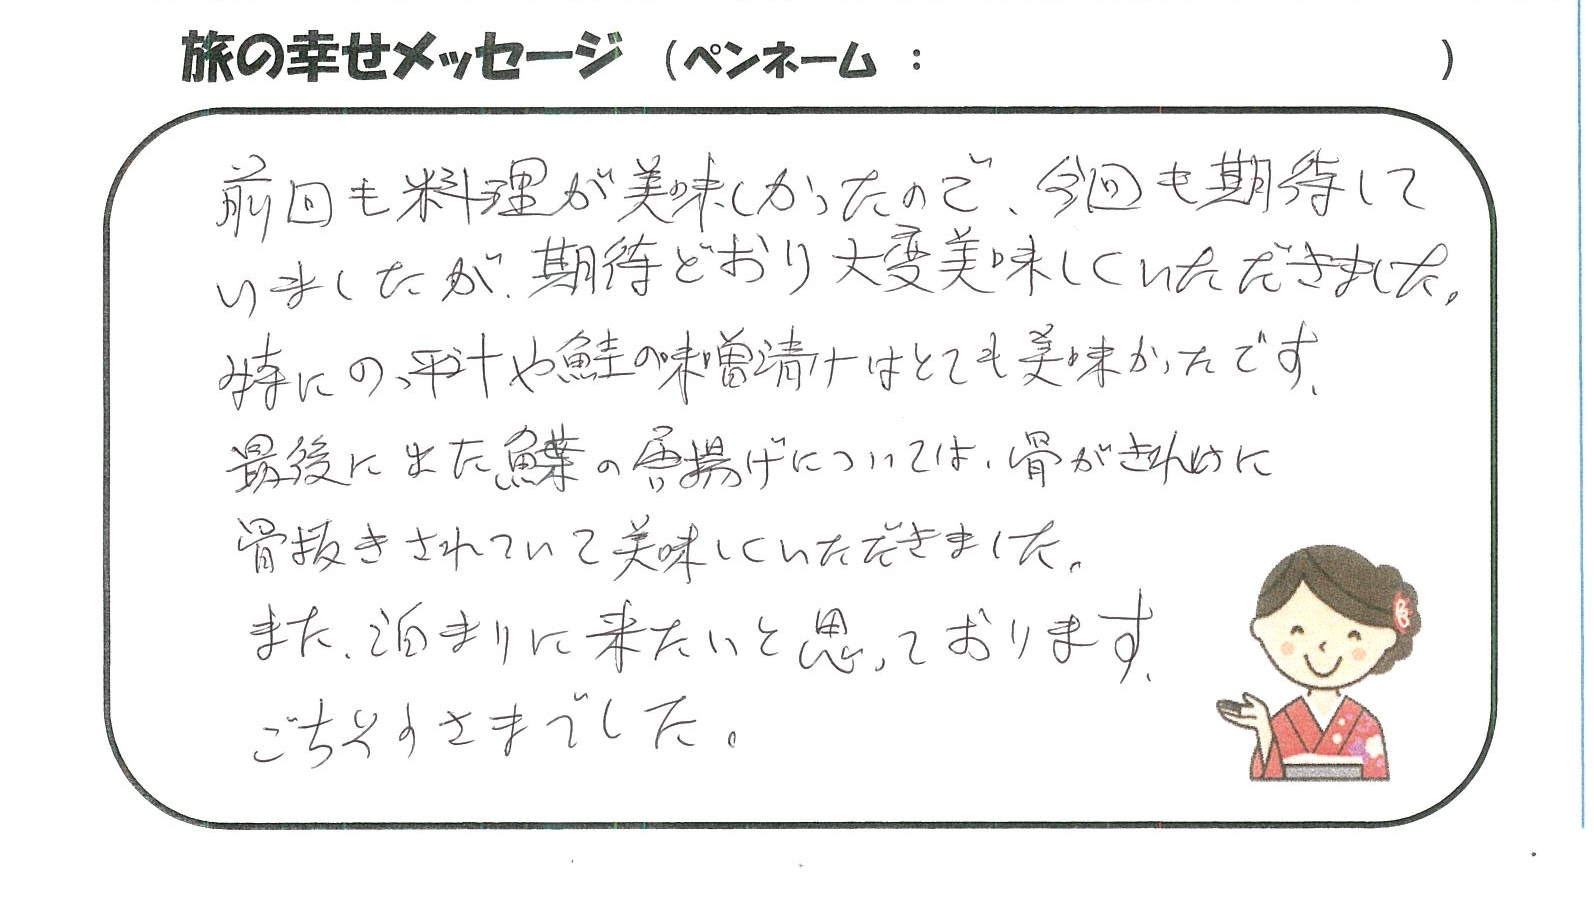 旅の幸せメッセージ (ペンネーム : )
前回も料理が美味しかったので、今回も期待して
いましたが、期待どおり大変美味しくいただきました。
特にのっぺ汁や鮭の味噌漬けはとても美味かったです。
最後に出た鰈の唐揚げについては、骨がきれいに
骨抜きされていて美味しくいただきました。
また、泊まりに来たいと思っております。
ごちそうさまでした。